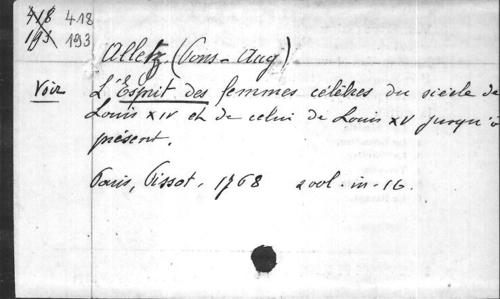 418 418
193 193
Alletz (Pons-Aug)
Voir L'Esprit des femmes célèbres du siècle de
Louis XIV et de celui de Louis XV jusqu'à
présent.
Paris, Pissot, 1768 2 vol. in-16.